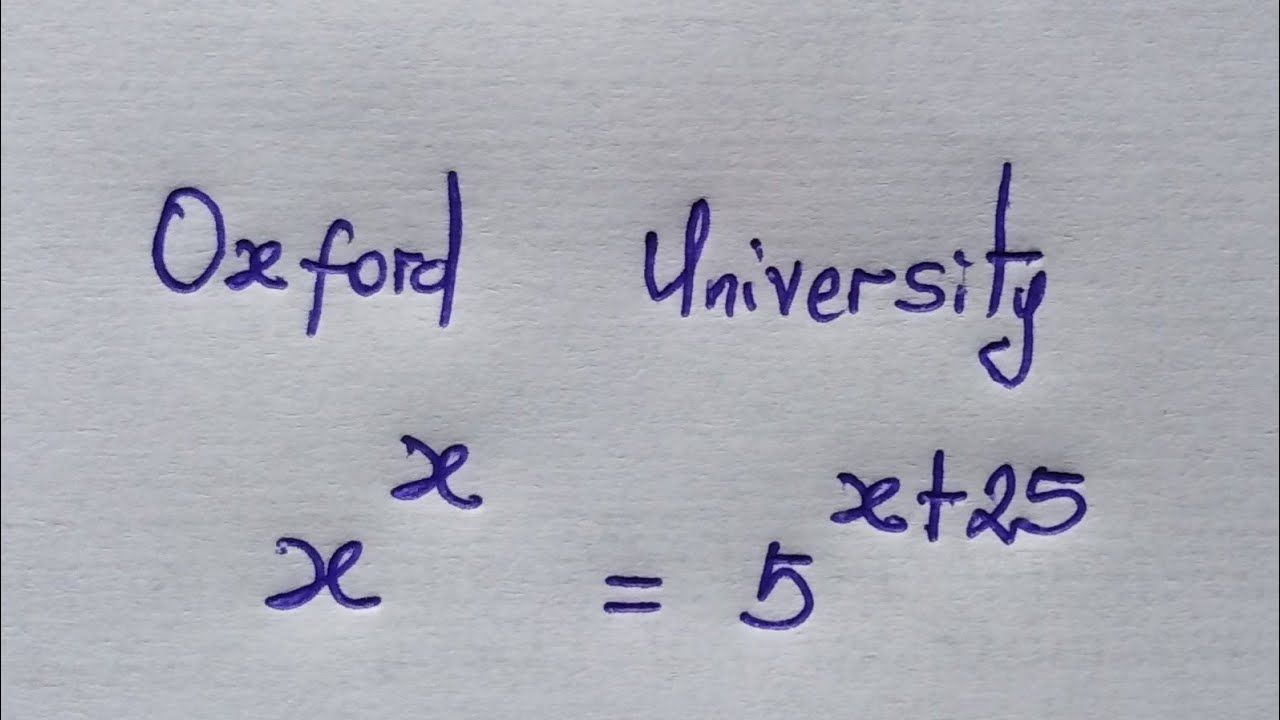 Oxford University
xˣ = 5ˣ⁺²⁵